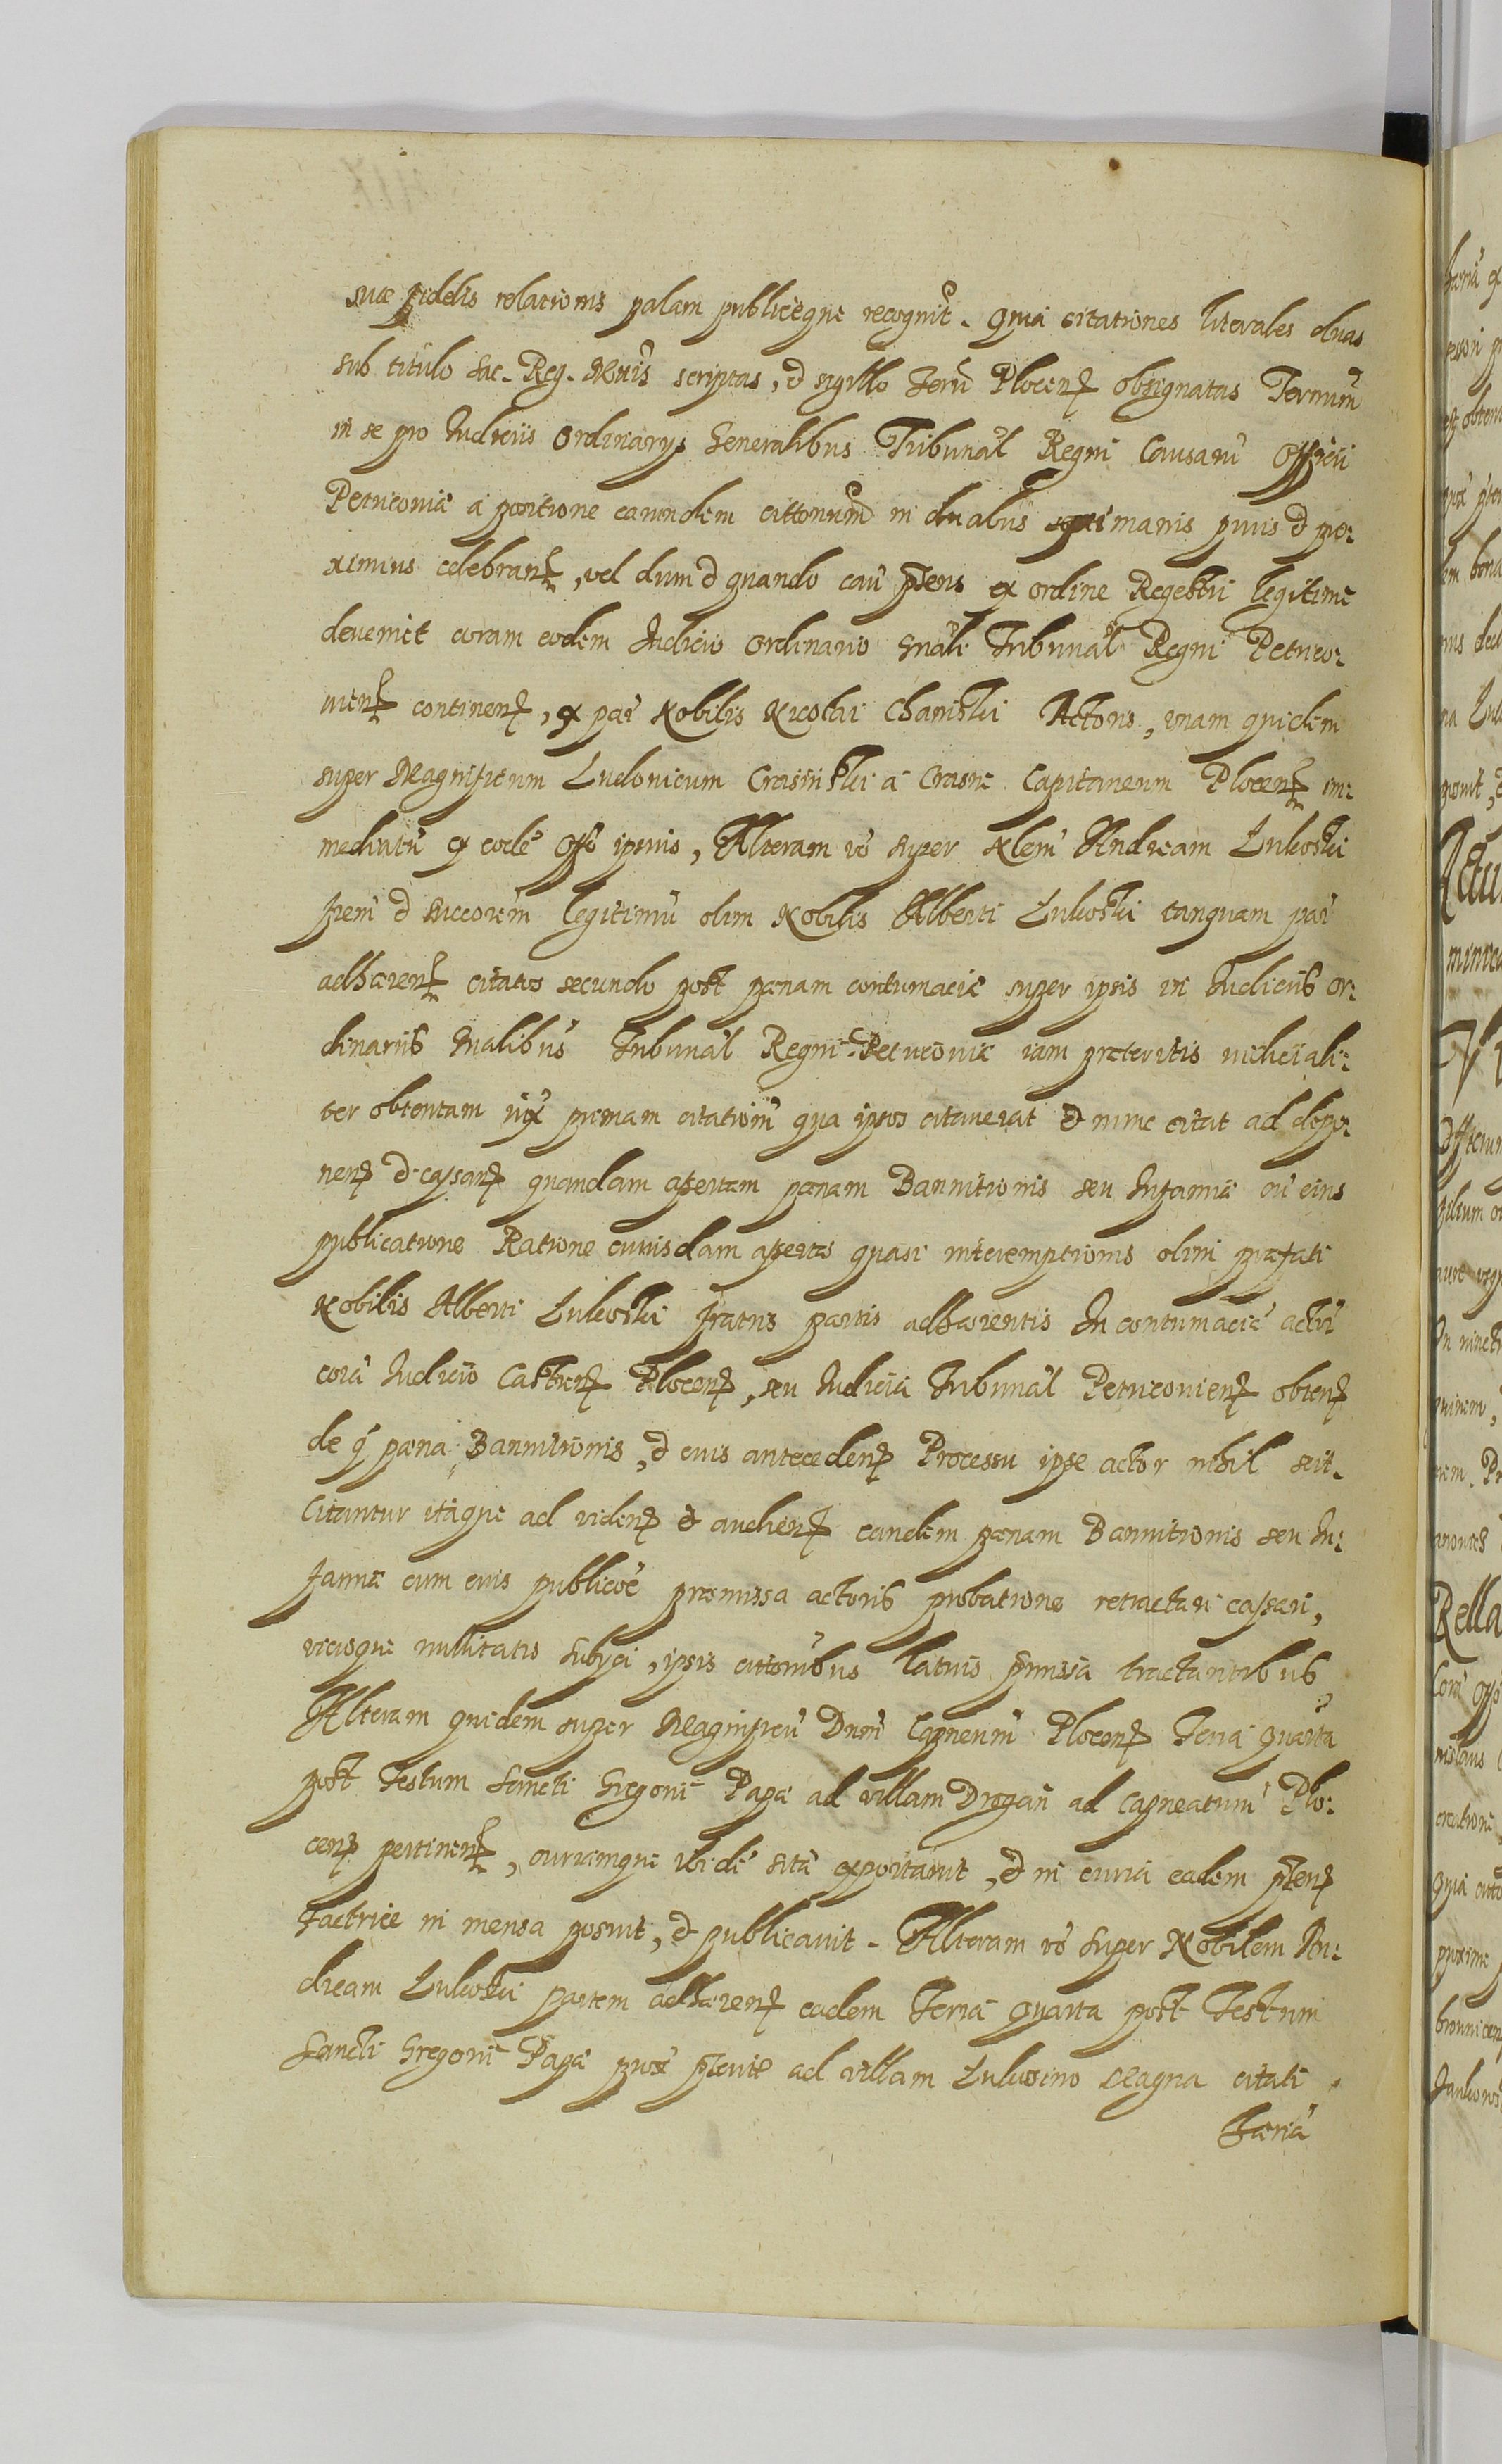 suæ fidelis relationis palam publicèque recognit. Quia citationes literales duas
sub titulo Sac. Reg. Mttis scriptas, et sigillo Terrae Plocen obsignatas Terminum
in se pro Iudiciis Ordinarys Generalibus Tribunal Regni Causarum Officii
Petricouiæ a positione earundem cittonum in duabus septimanis primis et pro:
ximius celebran, vel dum et quando cau pñens ex ordine Regestri legitime
deuenict coram eodem Iudicio ordinario Gnali Tribunal Regni Petrico:
uien continen, ex par Nobilis Nicolai Chamski Actoris, vnam quidem
super Magnificum Ludouicum Crasinski à Crasne Capitaneum Plocen im:
mediatu ex eode offo ipsius, Alteram vo super Nlem Andream Lukoski
frem et succorem legitimu olim Nobilis Alberti Lukoski tanquam par
adhæren citatos secundo post pænam contumaciæ super ipsis in Iudiciis or:
dinariis Gnalibus Tribunal Regni Petricouiæ iam præteritis iudiciali:
ter obtentam iux primam citationem qua ipsos citauerat et nunc citat ad depo:
nen et cassan quandam assertam pænam Bannitionis seu Infamiæ cu eius
publicatione Ratione cuiusdam assertæ quasi interemptionis olim præfati
Nobilis Alberti Lukoski fratris partis adhærentis In contumaciæ actu
corà Iudicio Castren Plocen, seu Iudicia Tribunal Petricouien obten
de q pæna Bannitionis, et eius anteceden Processu ipse actor nihil scit.
Citantur itàque ad viden et audien eandem pænam Bannitionis seu In:
famiæ cum eius publicoe præmissa actoris probatione retractari cassari,
vicioque nullitatis subyci, ipsis cittonibus latius pmissa tractantibus
Alteram quidem super Magnificu Dnm Capneum Plocen Feria quarta
post Festum Sancti Gregorii Papæ ad villam Drogan ad Capneatum Plo:
cen pertinen, curiamque ibide sita exportauit, et in curia eadem pñen
Factrice in mensa posuit, et publicauit. Alteram vo super Nobilem An:
dream Lukoski partem adhæren eadem Feria quarta post Festum
Sancti Gregorii Papæ prox pterite ad villam Lukowino Magna citati
Feria